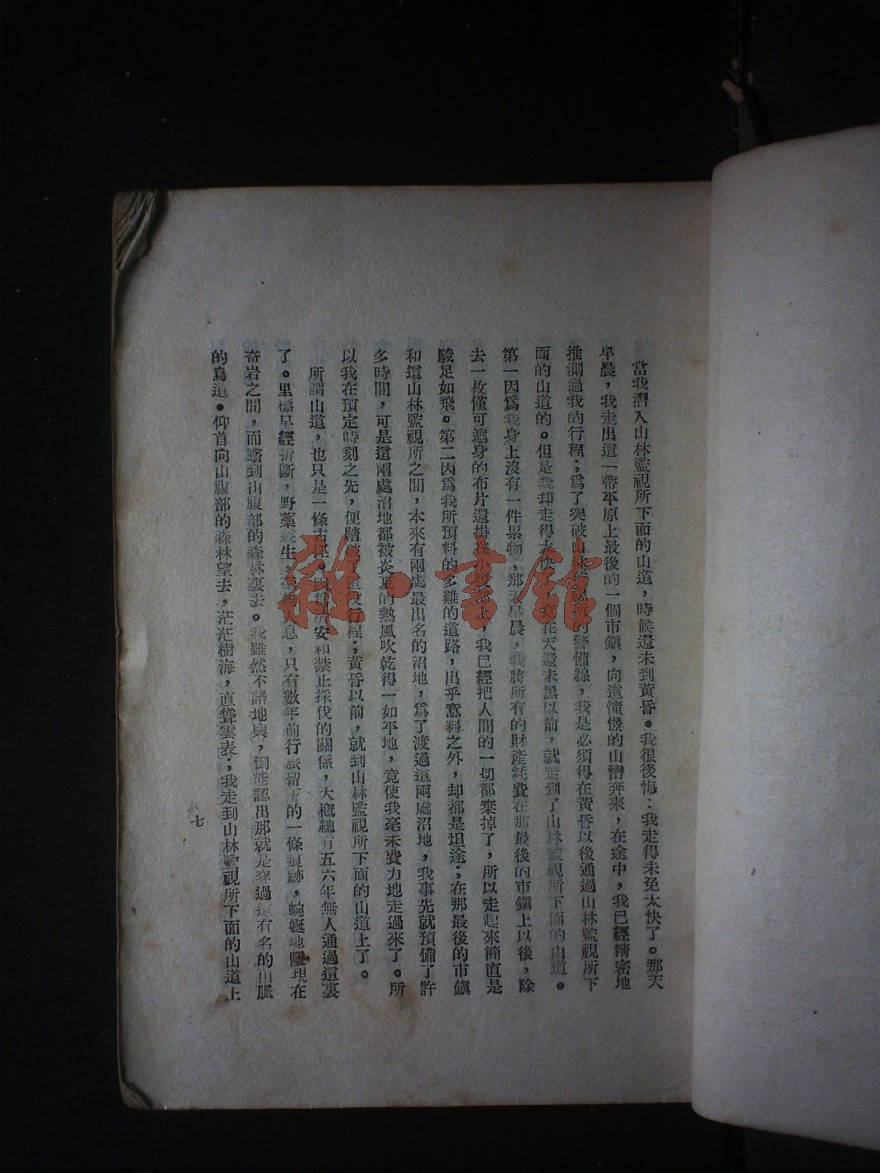 當我潛入山林監視所下面的山道，時候還未到黃昏。我很後悔：我走得未免太快了。那天
早晨，我走出這一帶平原上最後的一個市鎮，向這憧憬的山巒奔來，在途中，我已經精密地
推測過我的行程；爲了突破山林監視所的警備線，我是必須得在黃昏以後通過山林監視所下
面的山道的。但是我却走得太快，在天還未黑以前，就走到了山林監視所下面的山道。
第一因爲我身上沒有一件累物，那天早晨，我將所有的財產耗費在那最後的市鎮上以後，除
去一枚僅可遮身的布片還掛在小腹部上，我已經把人間的一切都棄掉了，所以走起來簡直是
駿足如飛。第二因爲我所預料的多難的道路，出乎意料之外，却都是坦途；在那最後的市鎮
和這山林監視所之間，本來有兩處最出名的沼地，爲了渡過這兩處沼地，我事先就預備了許
多時間，可是這兩處沼地都被炎夏的熱風吹乾得一如平地，竟使我毫未費力地走過來了。所
以我在預定時刻之先，便踏行程；黃昏以前，就到山林監視所下面的山道上了。
所謂山道，也只是一條古徑，治安和禁止採伐的關係，大概總有五六年無人通過這裏
了。里標早經折斷，野藥叢生，息，只有數年前行旅留下的一條痕跡，蜿蜒地隱現在
奇岩之間，而躋到山腹部的森林裏去。我雖然不諳地輿，倒能認出那就是穿過這有名的山脈
的鳥道。仰首向山腹部的森林望去，茫茫樹海，直聳雲表；我走到山林監視所下面的山道上
七
雜·書館